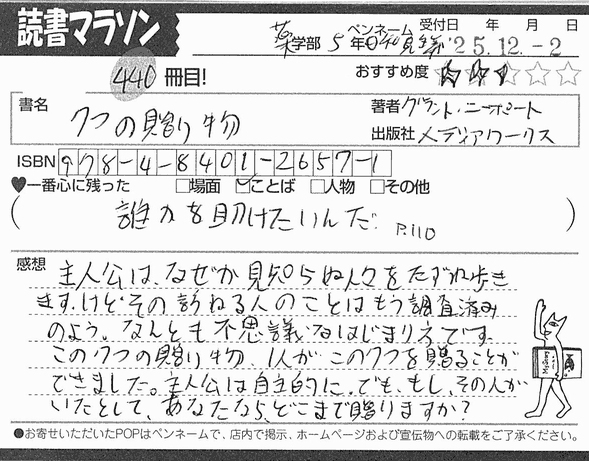 読書マラソン
薬学部 5年 ペンネーム 受付日 年 月 日
'25.12.-2
440 冊目!
おすすめ度 ★★☆☆☆
書名 7つの贈り物
著者 グラント・ニーポート
出版社 メディアワークス
ISBN 978-4-8401-2657-1
♥一番心に残った □場面 ☑ことば □人物 □その他
( 誰かを助けたいんだ. P.110 )
感想
主人公は、なぜか見知らぬ人々をたずね歩き
ます。けど、その訪ねる人のことはもう調査済み
のよう。なんとも不思議なはじまり方です。
この7つの贈り物、1人がこの7つを贈ることが
できました。主人公は自主的に。でも、もし、その人が
いたとして、あなたなら、どこまで贈りますか?
●お寄せいただいたPOPはペンネームで、店内で掲示、ホームページおよび宣伝物への転載をご了承ください。